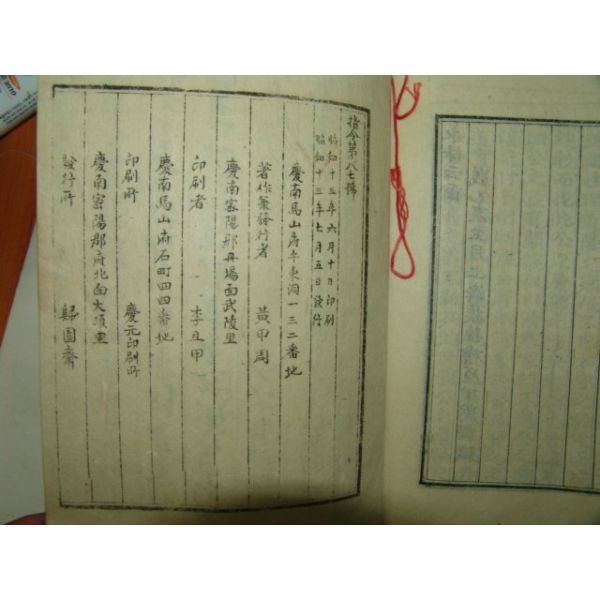 指令第八七號
昭和十三年六月十日印刷
昭和十三年七月五日發行
慶南馬山府午東洞一三二番地
著作兼發行者 黃甲周
慶南密陽郡丹場面武陵里
印刷者 李互甲
慶南馬山府石町四四番地
印刷所 慶元印刷所
慶南密陽郡府北面大項里
發行所 歸園齋